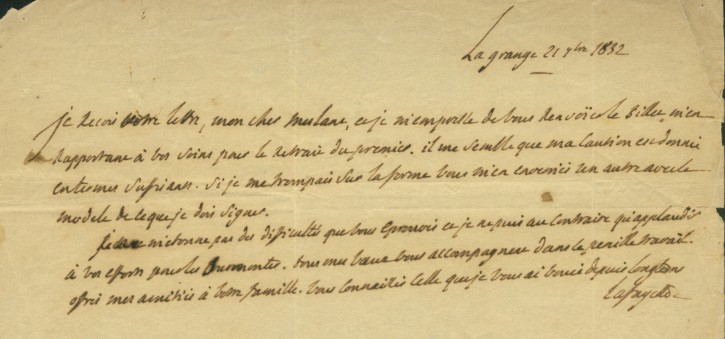 La grange 21 7bre 1832
je recois votre lettre, mon cher Merlane, et je m'empresse de vous renvoïer le Billet, m'en
rapportant à vos soins pour le retrait du premier. il me semble que ma Caution est donnée
en termes suffisans. Si je me trompais sur la forme vous m'en enverriés un autre avec le
modele de ce que je dois signer.
je ne m'etonne pas des difficultés que vous eprouvés et je ne puis au contraire qu'applaudir
à vos efforts pour les surmonter. tous mes vœux vous accompagnent dans le penible travail.
offrés mes amitiés à votre famille. Vous connaissés celle que je vous ai vouée depuis longtems
Lafayette